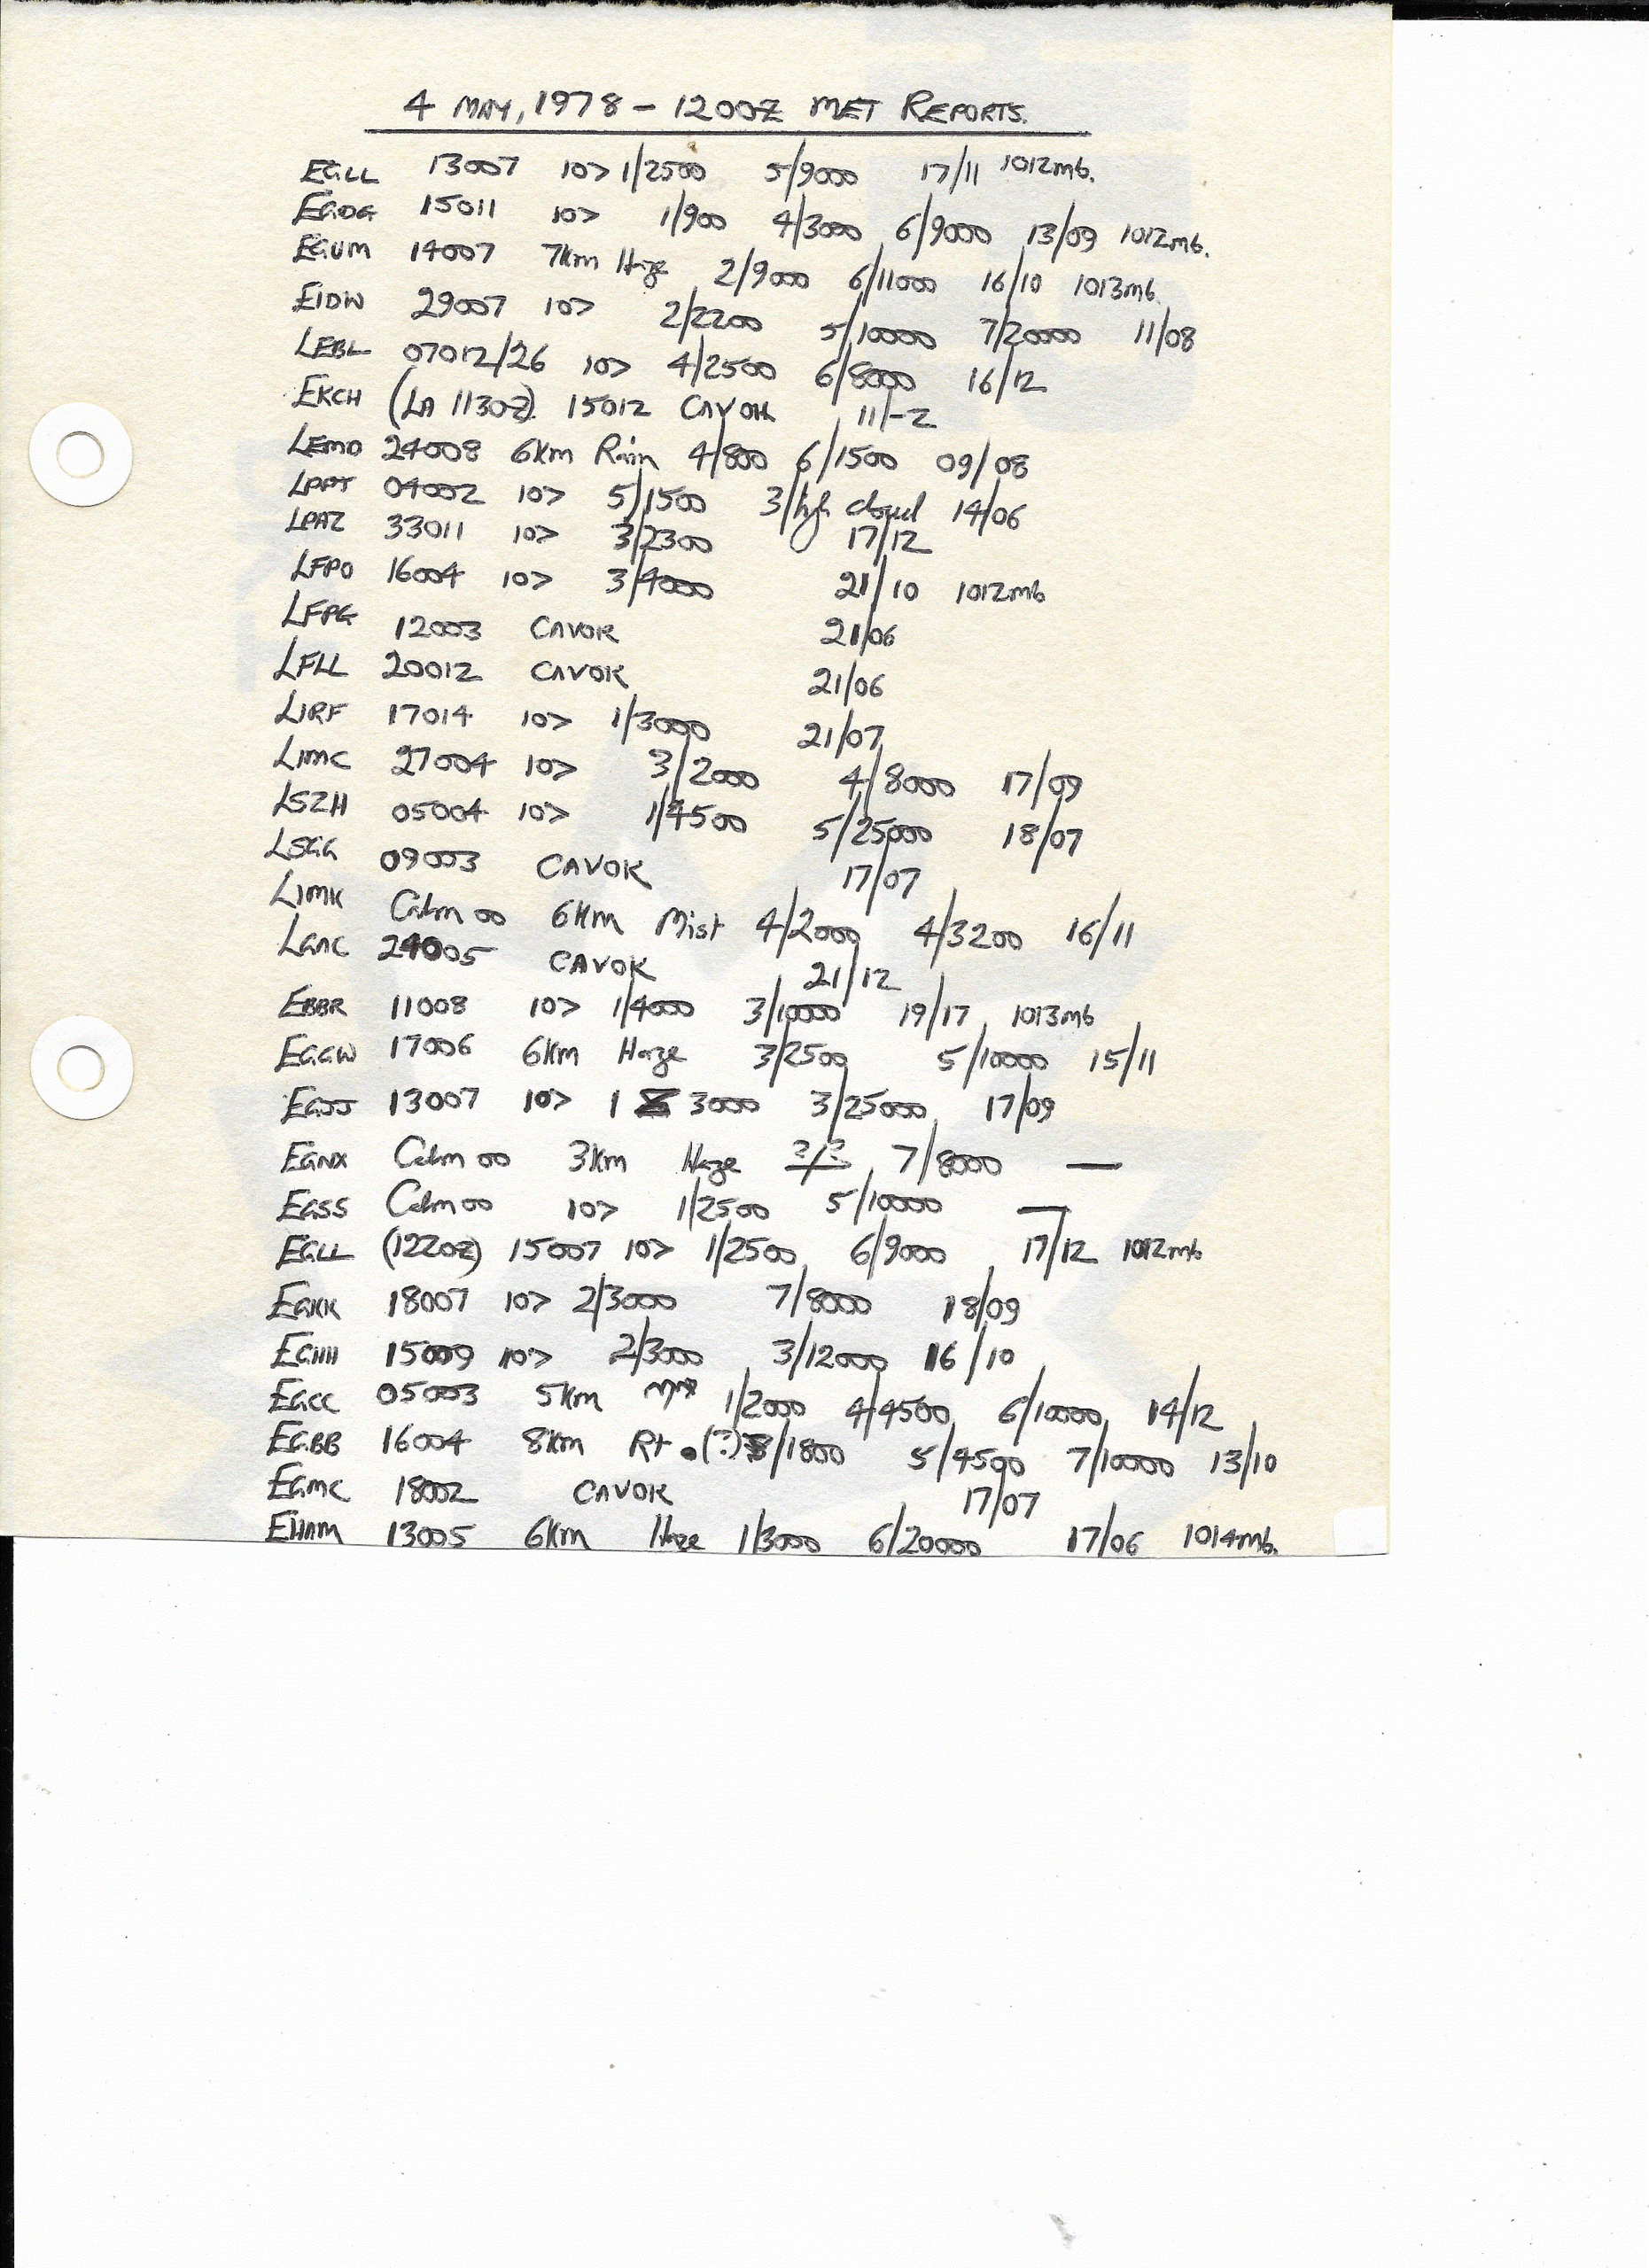 4 MAY, 1978 - 1200Z MET REPORTS.
EGLL 13007 10> 1/2500 5/9000 17/11 1012mb.
EGDG 15011 10> 1/900 4/3000 6/9000 13/09 1012mb.
EGUM 14007 7km Haze 2/9000 6/11000 16/10 1013mb.
EIDW 29007 10> 2/2200 5/10000 7/20000 11/08
LEBL 07012/26 10> 4/2500 6/8000 16/12
EKCH (LA 1130Z) 15012 CAVOK 11/-2
LEMD 24008 6km Rain 4/800 6/1500 09/08
LPPT 04002 10> 5/1500 3/high cloud 14/06
LPAZ 33011 10> 3/2300 17/12
LFPO 16004 10> 3/4000 21/10 1012mb
LFPG 12003 CAVOK 21/06
LFLL 20012 CAVOK 21/06
LIRF 17014 10> 1/3000 21/07
LIMC 27004 10> 3/2000 4/8000 17/09
LSZH 05004 10> 1/4500 5/25000 18/07
LSGG 09003 CAVOK 17/07
LIMK Calm 00 6km Mist 4/2000 4/3200 16/11
LGNC 24005 CAVOK 21/12
EBBR 11008 10> 1/4000 3/10000 19/17 1013mb
EGGW 17006 6km Haze 3/2500 5/10000 15/11
EGJJ 13007 10> 1 3000 3/25000 17/09
EGNX Calm 00 3km Haze ?/? 7/8000 —
EGSS Calm 00 10> 1/2500 5/10000 —
EGLL (1220Z) 15007 10> 1/2500 6/9000 17/12 1012mb
EGKK 18007 10> 2/3000 7/8000 18/09
EGHH 15009 10> 2/3000 3/12000 16/10
EGCC 05003 5km 1/2000 4/4500 6/10000 14/12
EGBB 16004 8km (?) /1800 5/4500 7/10000 13/10
EGMC 18002 CAVOK 17/07
EHAM 13005 6km Haze 1/3000 6/20000 17/06 1014mb.